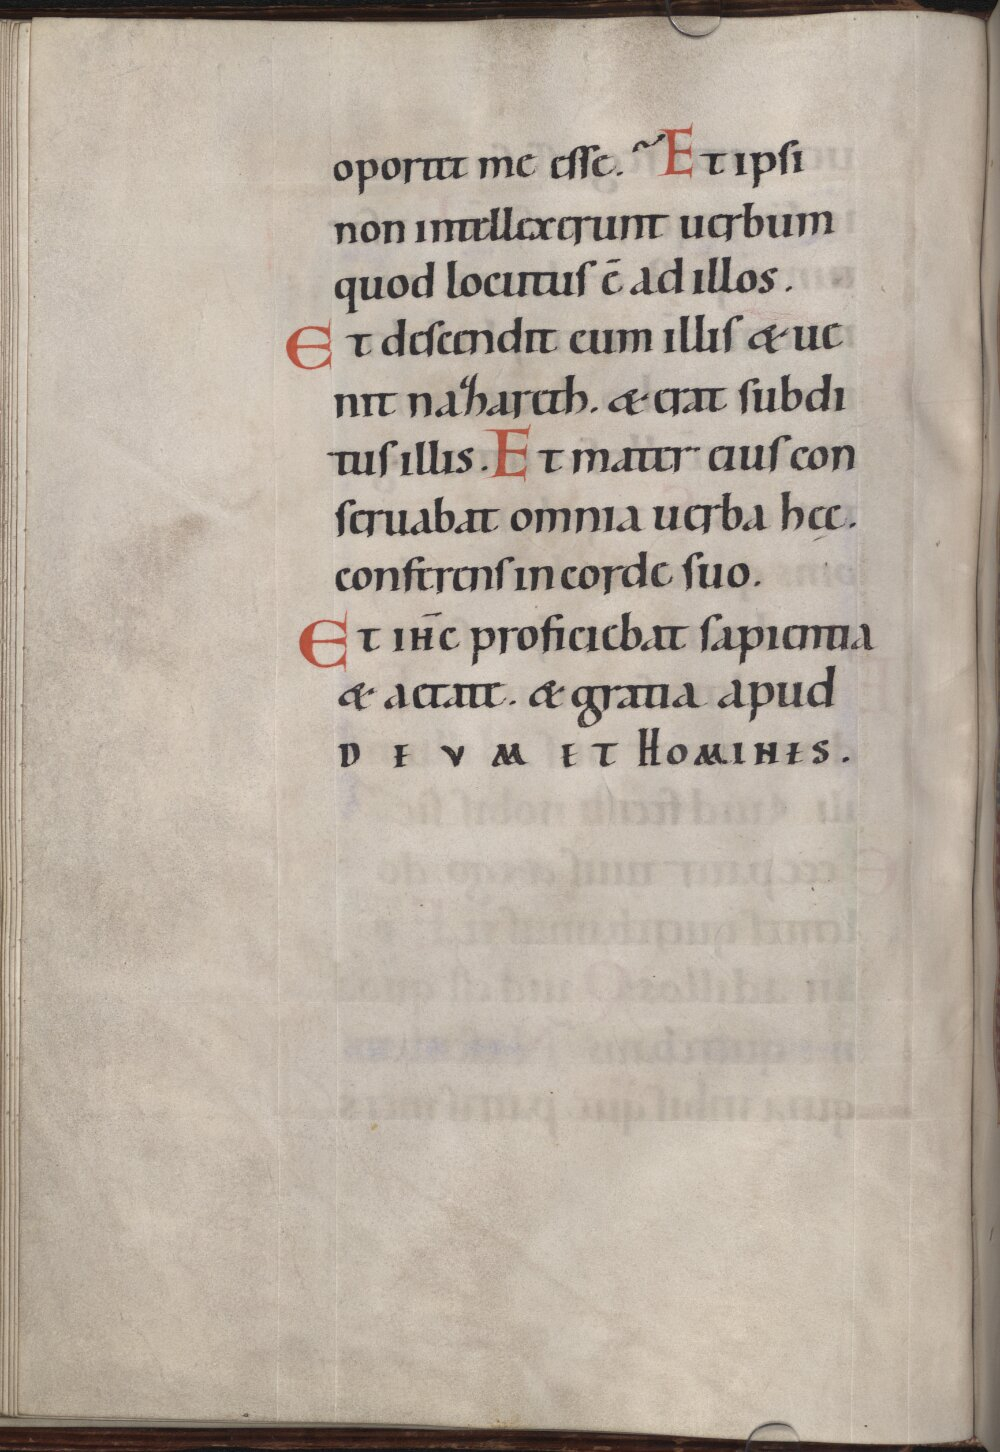 oportet me esse. Et ipsi
non intellexerunt uerbum
quod locutus ē ad illos.
Et descendit cum illis & ue
nit nazhareth. & erat subdi
tus illis. Et mater eius con
seruabat omnia uerba hec.
conferens in corde suo.
Et ihc̄ proficiebat sapientia
& aetate. & gratia apud
DEVM ET HOMINES.